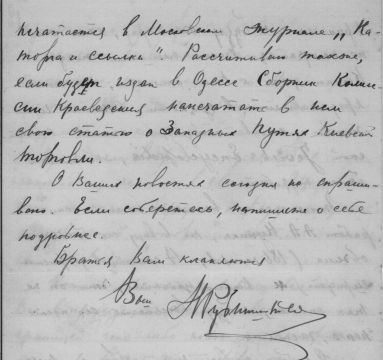 печатается в Московском журнале „Ка-
торга и ссылка“. Рассчитываю также,
если будет издан в Одессе Сборник Комис-
сии Краеведения напечатать в нем
свою статью о Западных Путях Киевской
торговли.
О Ваших новостях сегодня не спраши-
ваю. Если соберетесь, напишите о себе
подробнее.
Братья Вам кланяются
Ваш